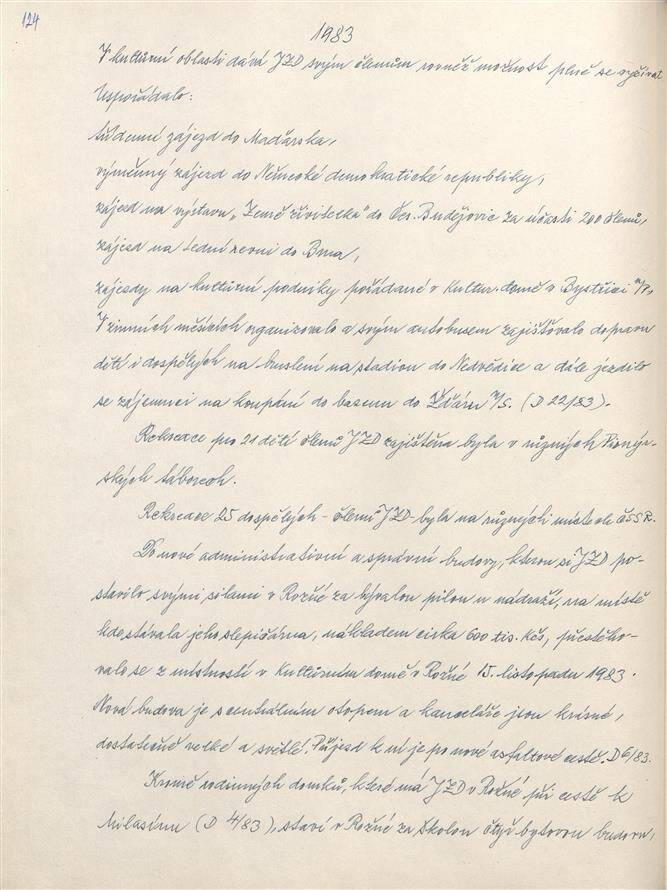 124
1983
V kulturní oblasti dává JZD svým členům rovněž možnost plně se vyžívat
Uspořádalo:
týdenní zájezd do Maďarska,
výměnný zájezd do Německé demokratické republiky,
zájezd na výstavu „Země živitelka" do Čes. Budějovic za účasti 200 členů,
zájezd na lední revui do Brna,
zájezdy na kulturní podniky pořádané v kultur. domě v Bystřici n/P,
V zimních měsících organizovalo a svým autobusem zajišťovalo dopravu
dětí i dospělých na bruslení na stadion do Nedvědice a dále jezdilo
se zájemci na koupání do basenu do Žďáru n/S. (D 22/83).
Rekreace pro 21 dětí členů JZD zajištěna byla v různých Pionýr-
ských táborech.
Rekreace 25 dospělých - členů JZD - byla na různých místech ČSSR.
Do nové administrativní a správní budovy, kterou si JZD po-
stavilo svými silami v Rožné za bývalou pilou u nádraží, na místě
kde stávala jeho slepičárna, nákladem cirka 600 tis. kčs, přestěho-
valo se z místností v Kulturním domě v Rožné 15. listopadu 1983.
Nová budova je s centrálním otopem a kanceláře jsou krásné,
dostatečně velké a světlé. Příjezd k ní je po nové asfaltové cestě. D 6/83.
Kromě rodinných domků, které má JZD v Rožné při cestě k
Milasínu (D 4/83), staví v Rožné za školou čtyř bytovou budovu,